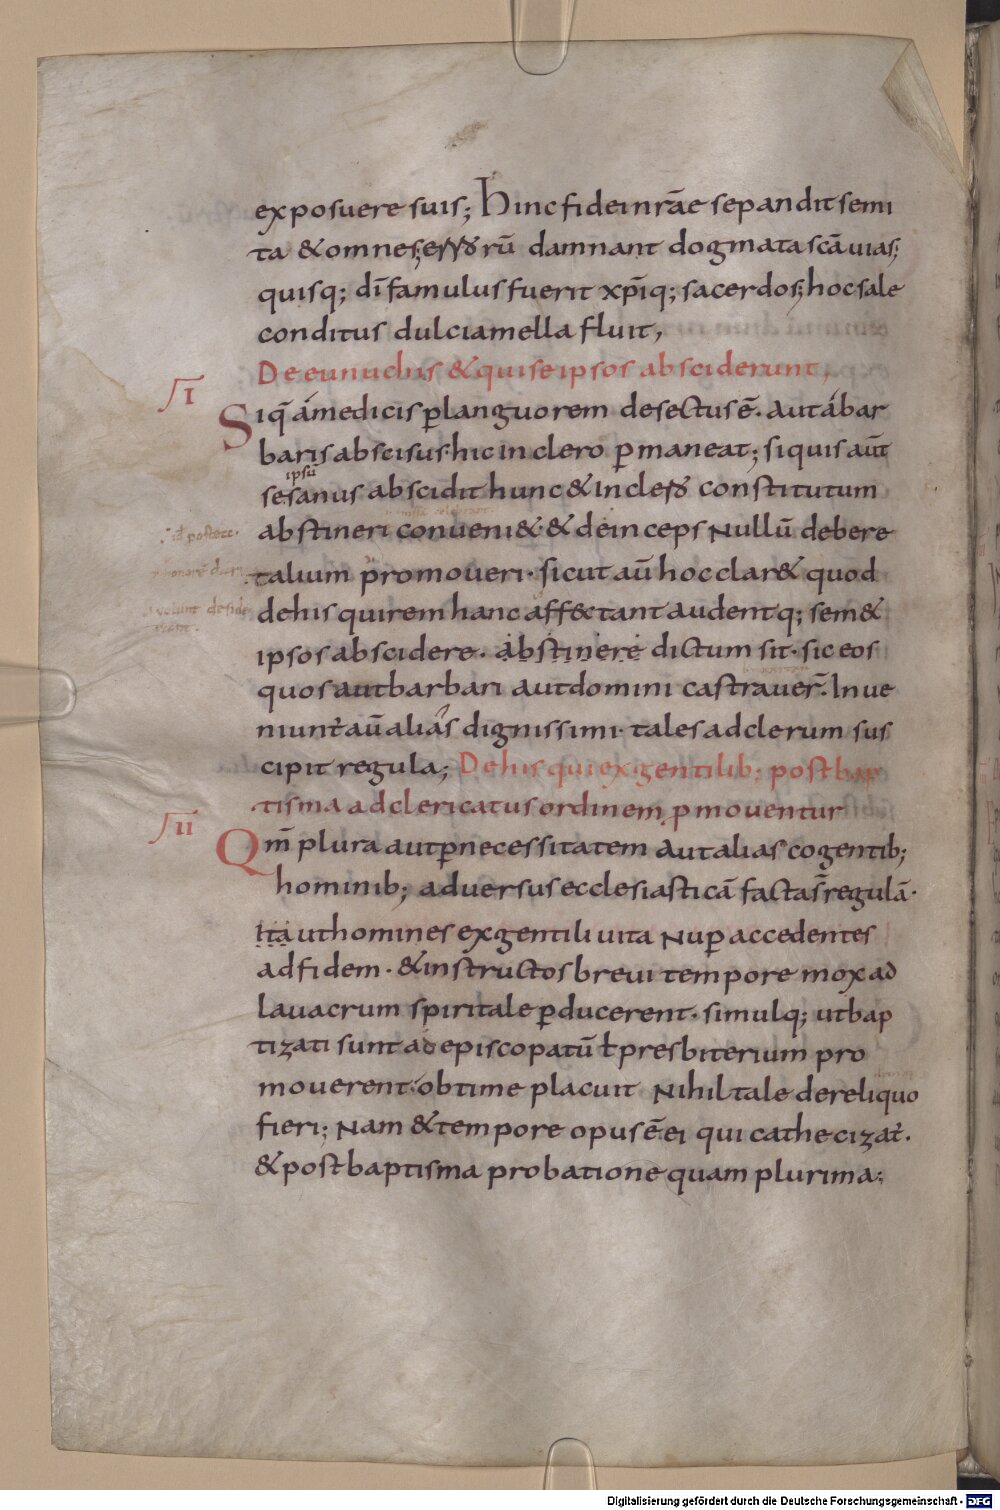 exposuere suis; Hinc fidei nr̄ae se pandit semi
ta & omnes; errorū damnant dogmata scā uias;
quisq; dī famulus fuerit xp̄iq; sacerdos; hoc sale
conditus dulcia mella fluit,
De eunuchis & qui se ipsos absciderunt,
I
Siq̄ a medicis ꝑ languorem desectus ē. aut a bar
baris abscisus. hic in clero ꝑmaneat; si quis aūt
ipsū
se sanus abscidit hunc & in clero constitutum
abstineri conueni&. & deinceps Nullū debere
talium promoueri. sicut aū hoc clar& quod
de his qui rem hanc affectant audentq; sem&
ipsos abscidere. abstinere dictum sit. sic eos
quos aut barbari aut domini castrauer̄. Inue
niunt̄ aū alias dignissimi. tales ad clerum sus
cipit regula; De his qui ex gentilib; post bap
tisma ad clericatus ordinem ꝓmouentur
II
Qm̄ plura aut ꝑ necessitatem aut alias cogentib;
hominib; aduersus ecclesiasticā facta s̄ regulā.
Ita ut homines ex gentili uita Nuꝑ accedentes
ad fidem. & instructos breui tempore mox ad
lauacrum spiritale ꝑducerent. simulq; ut bap
tizati sunt ad episcopatū ł presbiterium pro
mouerent. obtime placuit Nihil tale de reliquo
fieri; Nam & tempore opus ē ei qui cathecizat̄.
& post baptisma probatione quam plurima;
Digitalisierung gefördert durch die Deutsche Forschungsgemeinschaft - DFG